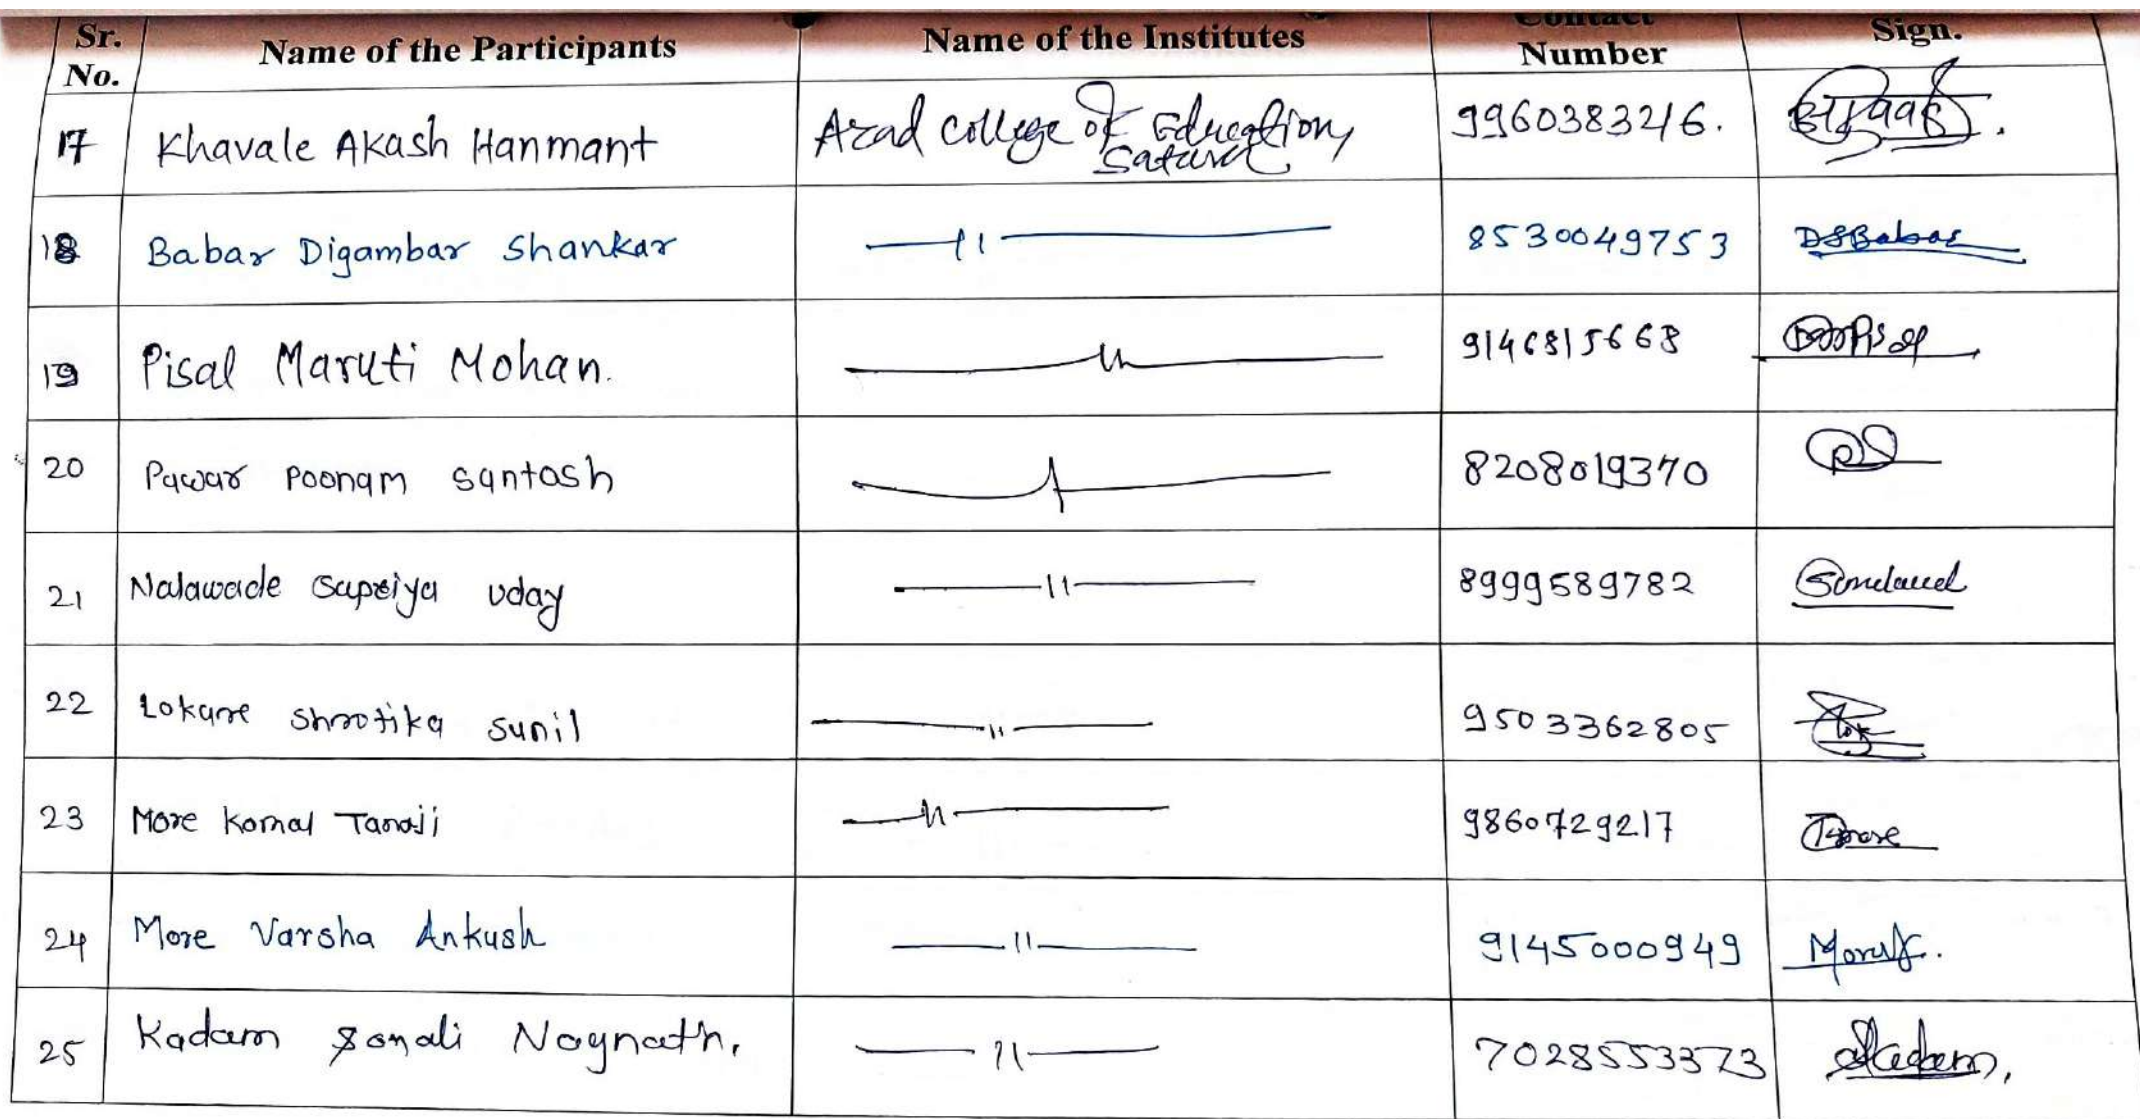 Sr. No. Name of the Participants Name of the Institutes Contact Number Sign.
17 Khavale Akash Hanmant Azad College of Education, Satara 9960383216.
18 Babar Digambar Shankar —11— 8530049753 DSBabar
19 Pisal Maruti Mohan. —11— 9146815668
20 Pawar Poonam Santosh 8208019370 PS
21 Nalawade Supriya Uday —11— 8999589782
22 Lokare Shrotika Sunil —11— 9503362805
23 More Komal Tanaji —11— 9860729217
24 More Varsha Ankush —11— 9145000949
25 Kadam Sonali Nagnath, —11— 7028553373